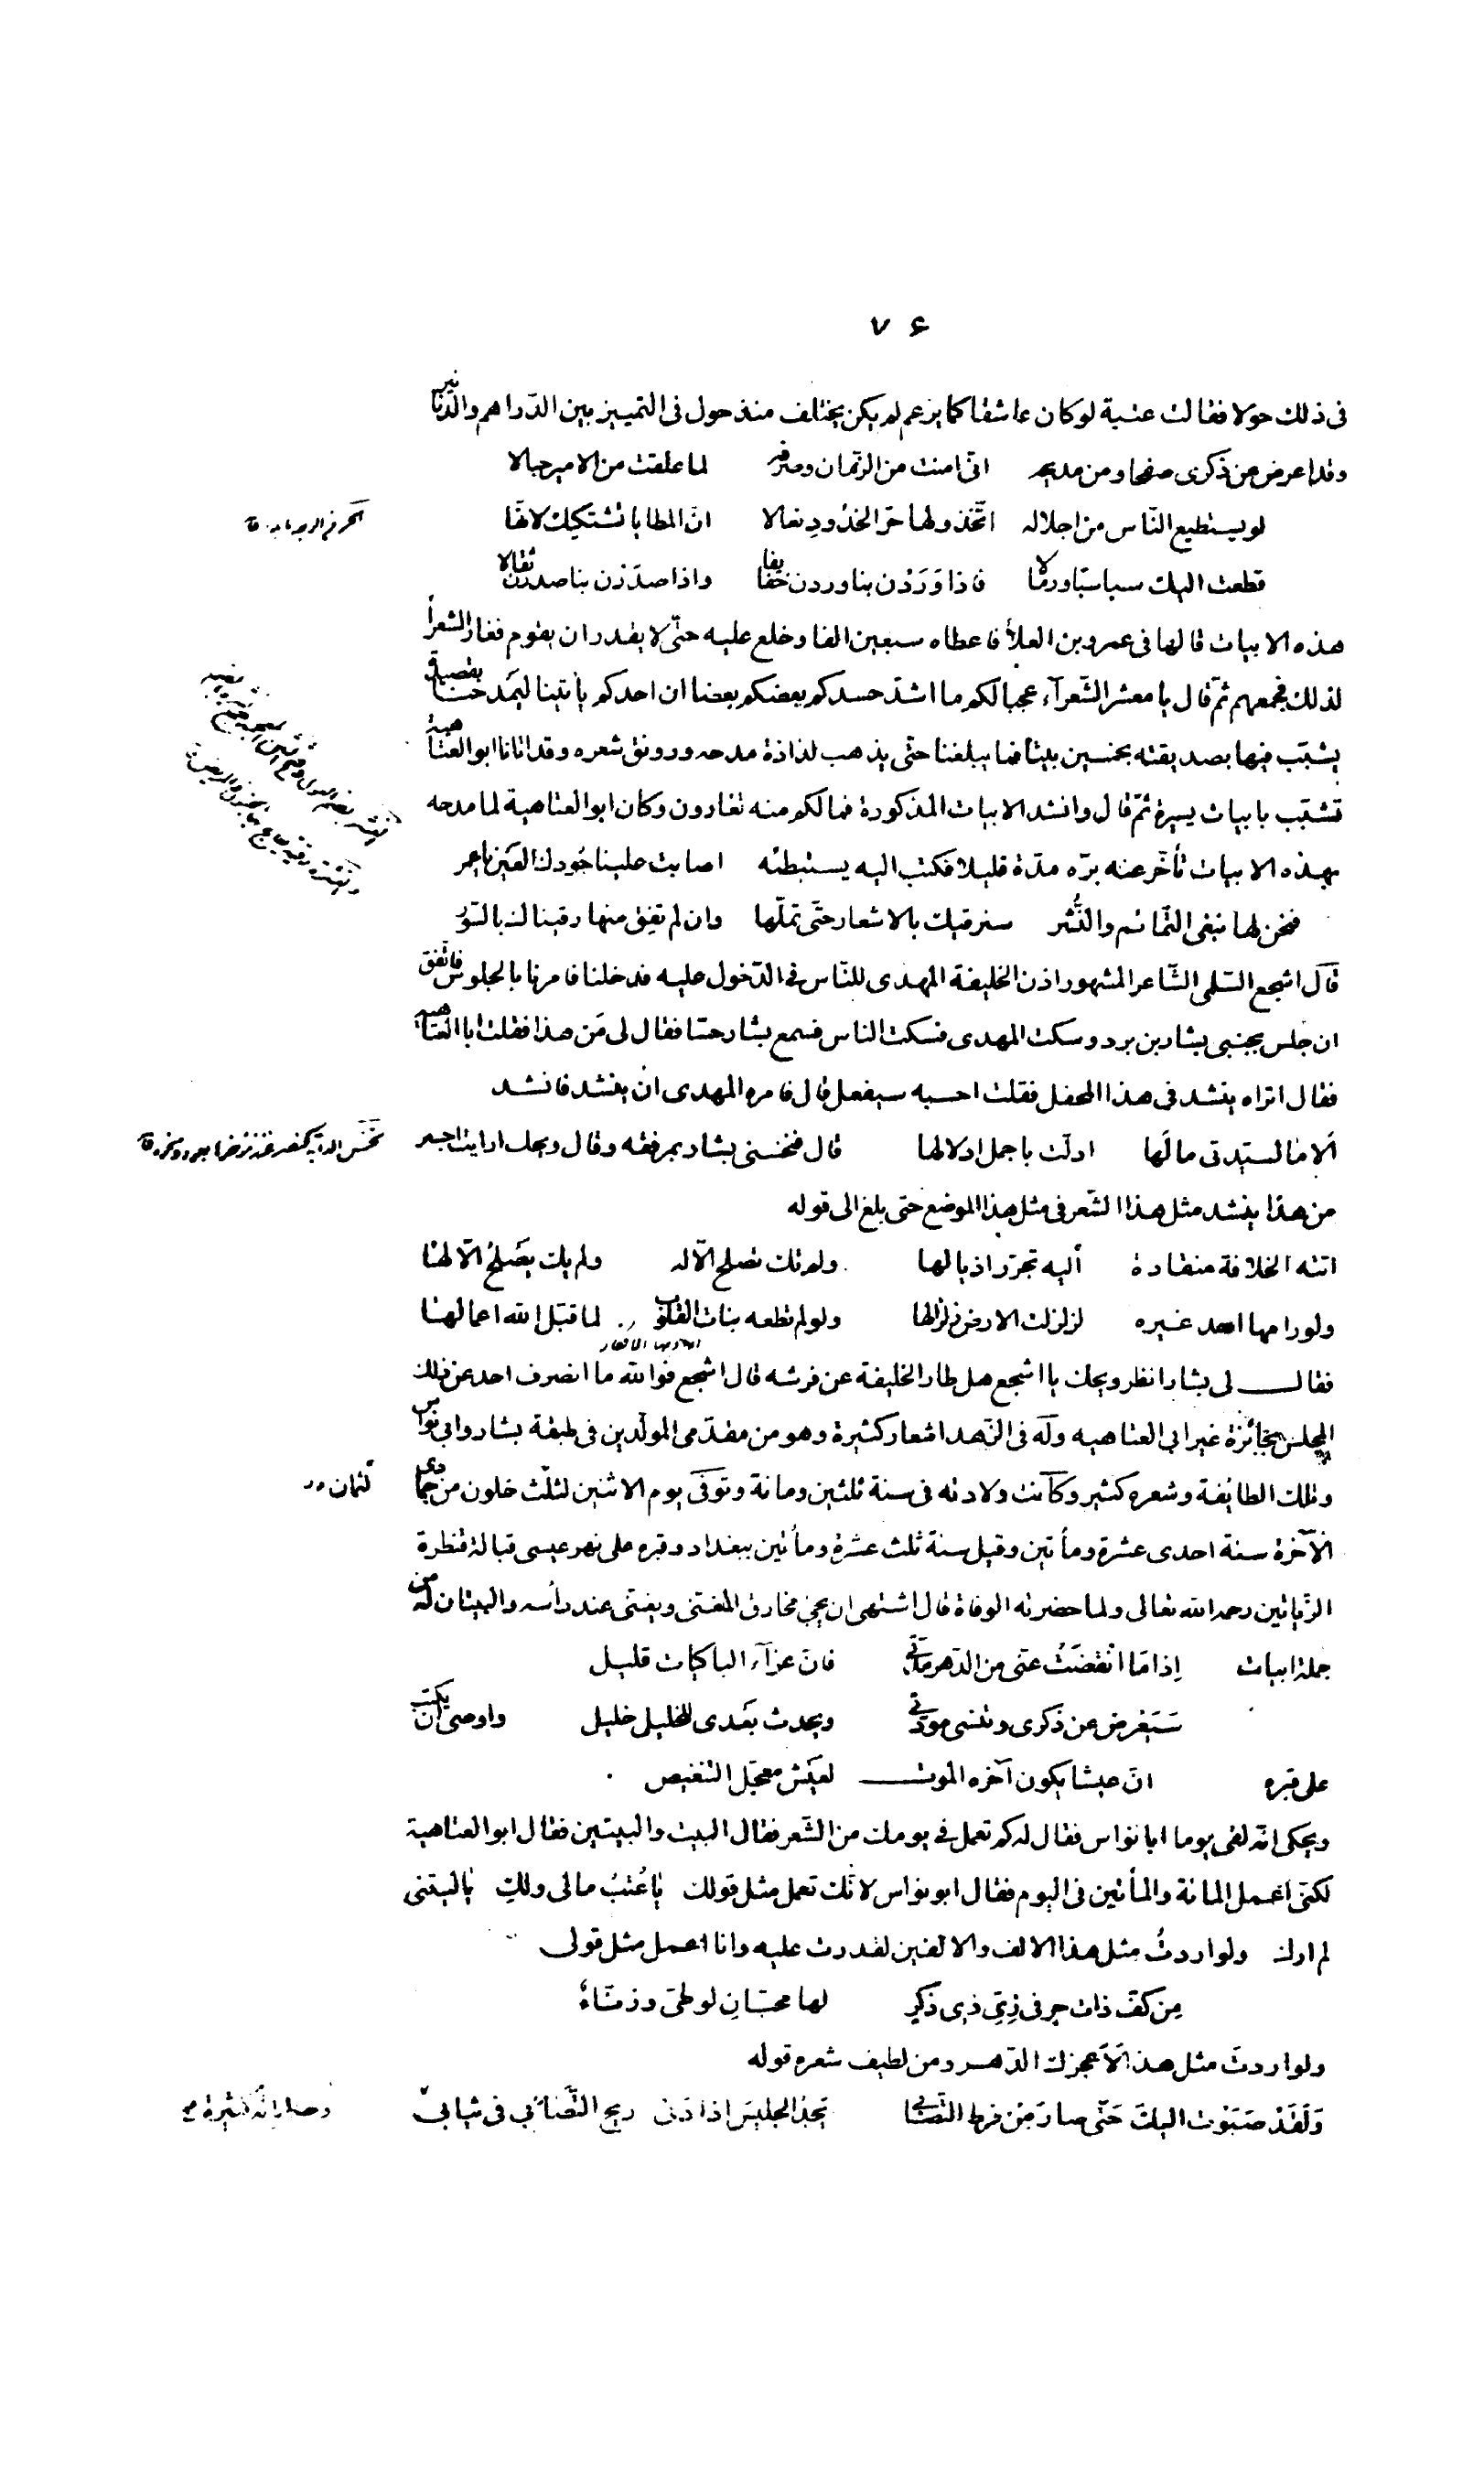 ۷۶
فى ذلك حولا فقالت عتبة لو كان عاشقا كما يزعم لم يكن يختلف منذ حول فى التمييز بين الدّراهم والدّنانير
وقد اعرض عن ذكرى صفحا ومن مديحه انّى امنت من الزّمان وصرفه لما علقت من الامير حبالا
لو يستطيع النّاس من اجلاله اتّخذوا لها حرّ الخدود نعالا انّ المطايا تشتكيك لانّها
قطعت اليك سباسبا ورمالا فاذا وَرَدْن بنا وردن خفايفا واذا صدَرْن بنا صدرن ثقالا
هذه الابيات قالها فى عمرو بن العلأ فاعطاه سبعين الفا وخلع عليه حتّى لا يقدر ان يقوم فغار الشعرأ
لذلك فجمعهم ثمّ قال يا معشر الشّعرآء عجبا لكم ما اشدّ حسدكم بعضكم بعضا ان احدكم يأتينا ليمدحنا بقصيدة
يشبّب فيها بصديقته بخمسين بيتا فما يبلغنا حتّى يذهب لذاذة مدحه ورونق شعره وقد اتانا ابو العتاهية
تشبّب بابيات يسيرة ثمّ قال وانشد الابيات المذكورة فما لكم منه تغارون وكان ابو العتاهية لما مدحه
بهذه الابيات تأخّر عنه برّه مدّة قليلا فكتب اليه يستبطئه اصابت علينا جُودك العين يا عمر
فنحن لها نبغى التّمائم والنُّشر سنرقيك بالاشعار حتّى تملّها وان لم تفق منها رقيناك بالسّور
قال اشجع السّلمى الشّاعر المشهور اذن الخليفة المهدى للنّاس فى الدّخول عليه فدخلنا فامرنا بالجلوس فاتّفق
ان جلس بجنبى بشار بن برد وسكت المهدى فسكت الناس فسمع بشار حسّا فقال لى مَن هذا فقلت ابا العتاهيه
فقال اتراه ينشد فى هذا المحفل فقلت احسبه سيفعل قال فامره المهدى ان ينشد فانشد
اَلا ما لسيّدتى ما لَها ادلّت باجمل ادلالها قال فنخسنى بشار بمرفقه وقال ويحك ارايت اجسر
من هذا ينشد مثل هذا الشّعر فى مثل هذا الموضع حتى بلغ الى قوله
اتته الخلافة منقادة اليه تجرّر اذيالها ولم تك تصلح الّا له ولم يك يصلح الّا لها
ولو رامها احد غيره لزلزلت الارض زلزالها ولو لم تطعه بنات القلوب لما قبل الله اعمالها
فقال لى بشار انظر ويحك يا اشجع هل طار الخليفة عن فرشه قال اشجع فوالله ما انصرف احد عن ذلك
المجلس بجائزة غير ابى العتاهيه وله فى الزّهد اشعار كثيرة وهو من مقدّمى المولّدين فى طبقة بشار وابى نواس
وتلك الطائفة وشعره كثير وكانت ولادته فى سنة ثلثين ومائة وتوفّى يوم الاثنين لثلث خلون من جمادى
الآخرة سنة احدى عشرة ومأتين وقيل سنة ثلث عشرة ومأتين ببغداد وقبره على نهر عيسى قبالة قنطرة
الزّياتين رحمه الله تعالى ولما حضرته الوفاة قال اشتهى ان يجئ مخارق المغنّى ويغنّى عند رأسه والبيتان له من
جملة ابيات اِذا مَا انْقضَتْ عنّى من الدّهر مدّتى فانّ عزآء الباكيات قليل
سَيَعْرض عن ذكرى وتنسى مودّتى ويحدث بَعْدى للخليل خليل واوصى ان يكتب
على قبره انّ عيشا يكون آخره الموت لعيش معجّل التنغيص
ويحكى انّه لقى يوما ابا نواس فقال له كم تعمل فى يومك من الشّعر فقال البيت والبيتين فقال ابو العتاهية
لكنّى اعمل المائة والمأتين فى اليوم فقال ابو نواس لانّك تعمل مثل قولك يا عُتبُ مالى ولكِ يا ليتنى
لم ارك ولو اردتُ مثل هذا الالف والالفين لقدرت عليه وانا اعمل مثل قولى
مِن كفّ ذات حر فى زِىّ ذى ذكرٍ لها محبّانِ لوطىّ وزنّاءُ
ولو اردتَ مثل هذا لَاَعجزك الدّهر ومن لطيف شعره قوله
وَلَقَدْ صَبَوْت اليكَ حَتّى صارَ مِنْ فرط التصابى يَجِدُ الجليسَ اذا دَنى ريح التّصابى فى ثيابى
لثمان